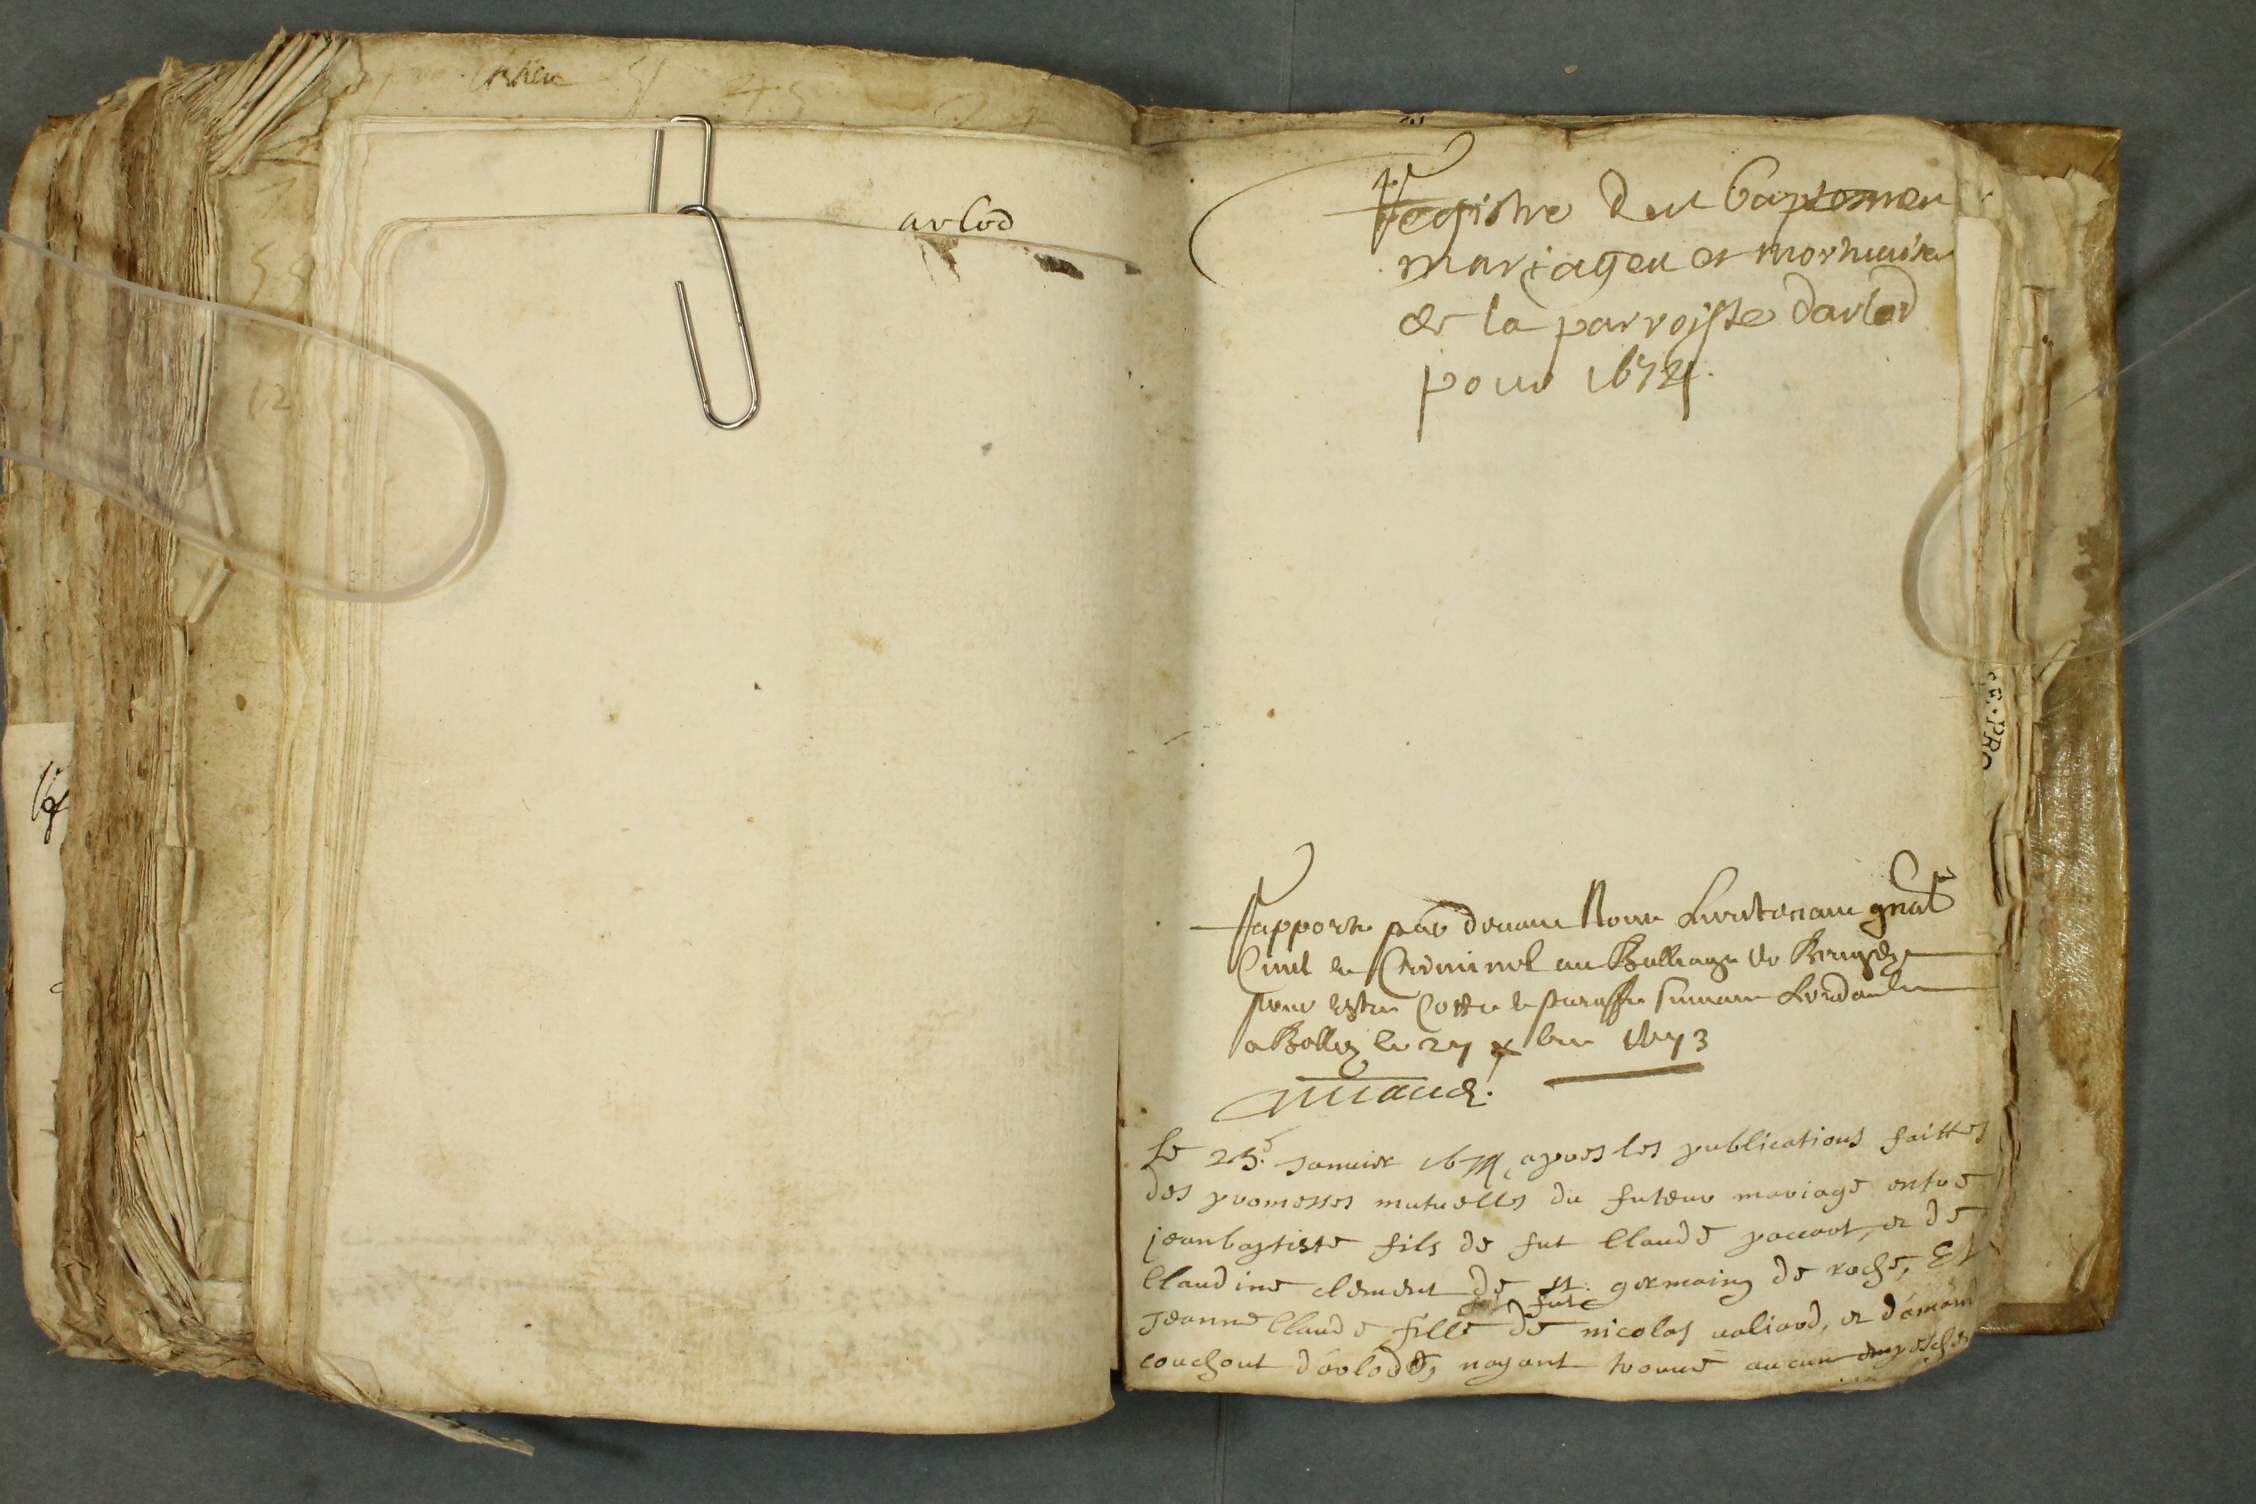 arlod
Registre des baptesmes
mariages et mortuaires
de la parroisse darlod
pour 1674.
Rapporté par devant Nous Lieutenant gnal
Civil et Criminel au Balliage de Bugey
pour estre Cotté et paraffé suivant Lordonance
a Belley le 27 xbre 1673
Le 25e januier 1674 apres les publications faittes
des promesses mutuelles du futeur mariage entre
jeanbaptiste fils de fut Claude paccoot, et de
Claudine clement de st. germaing de roche, Et
fut
Jeanne Claude fille de nicolas valiard, et
couchout d'arlod, nayant trouue aucun empesche